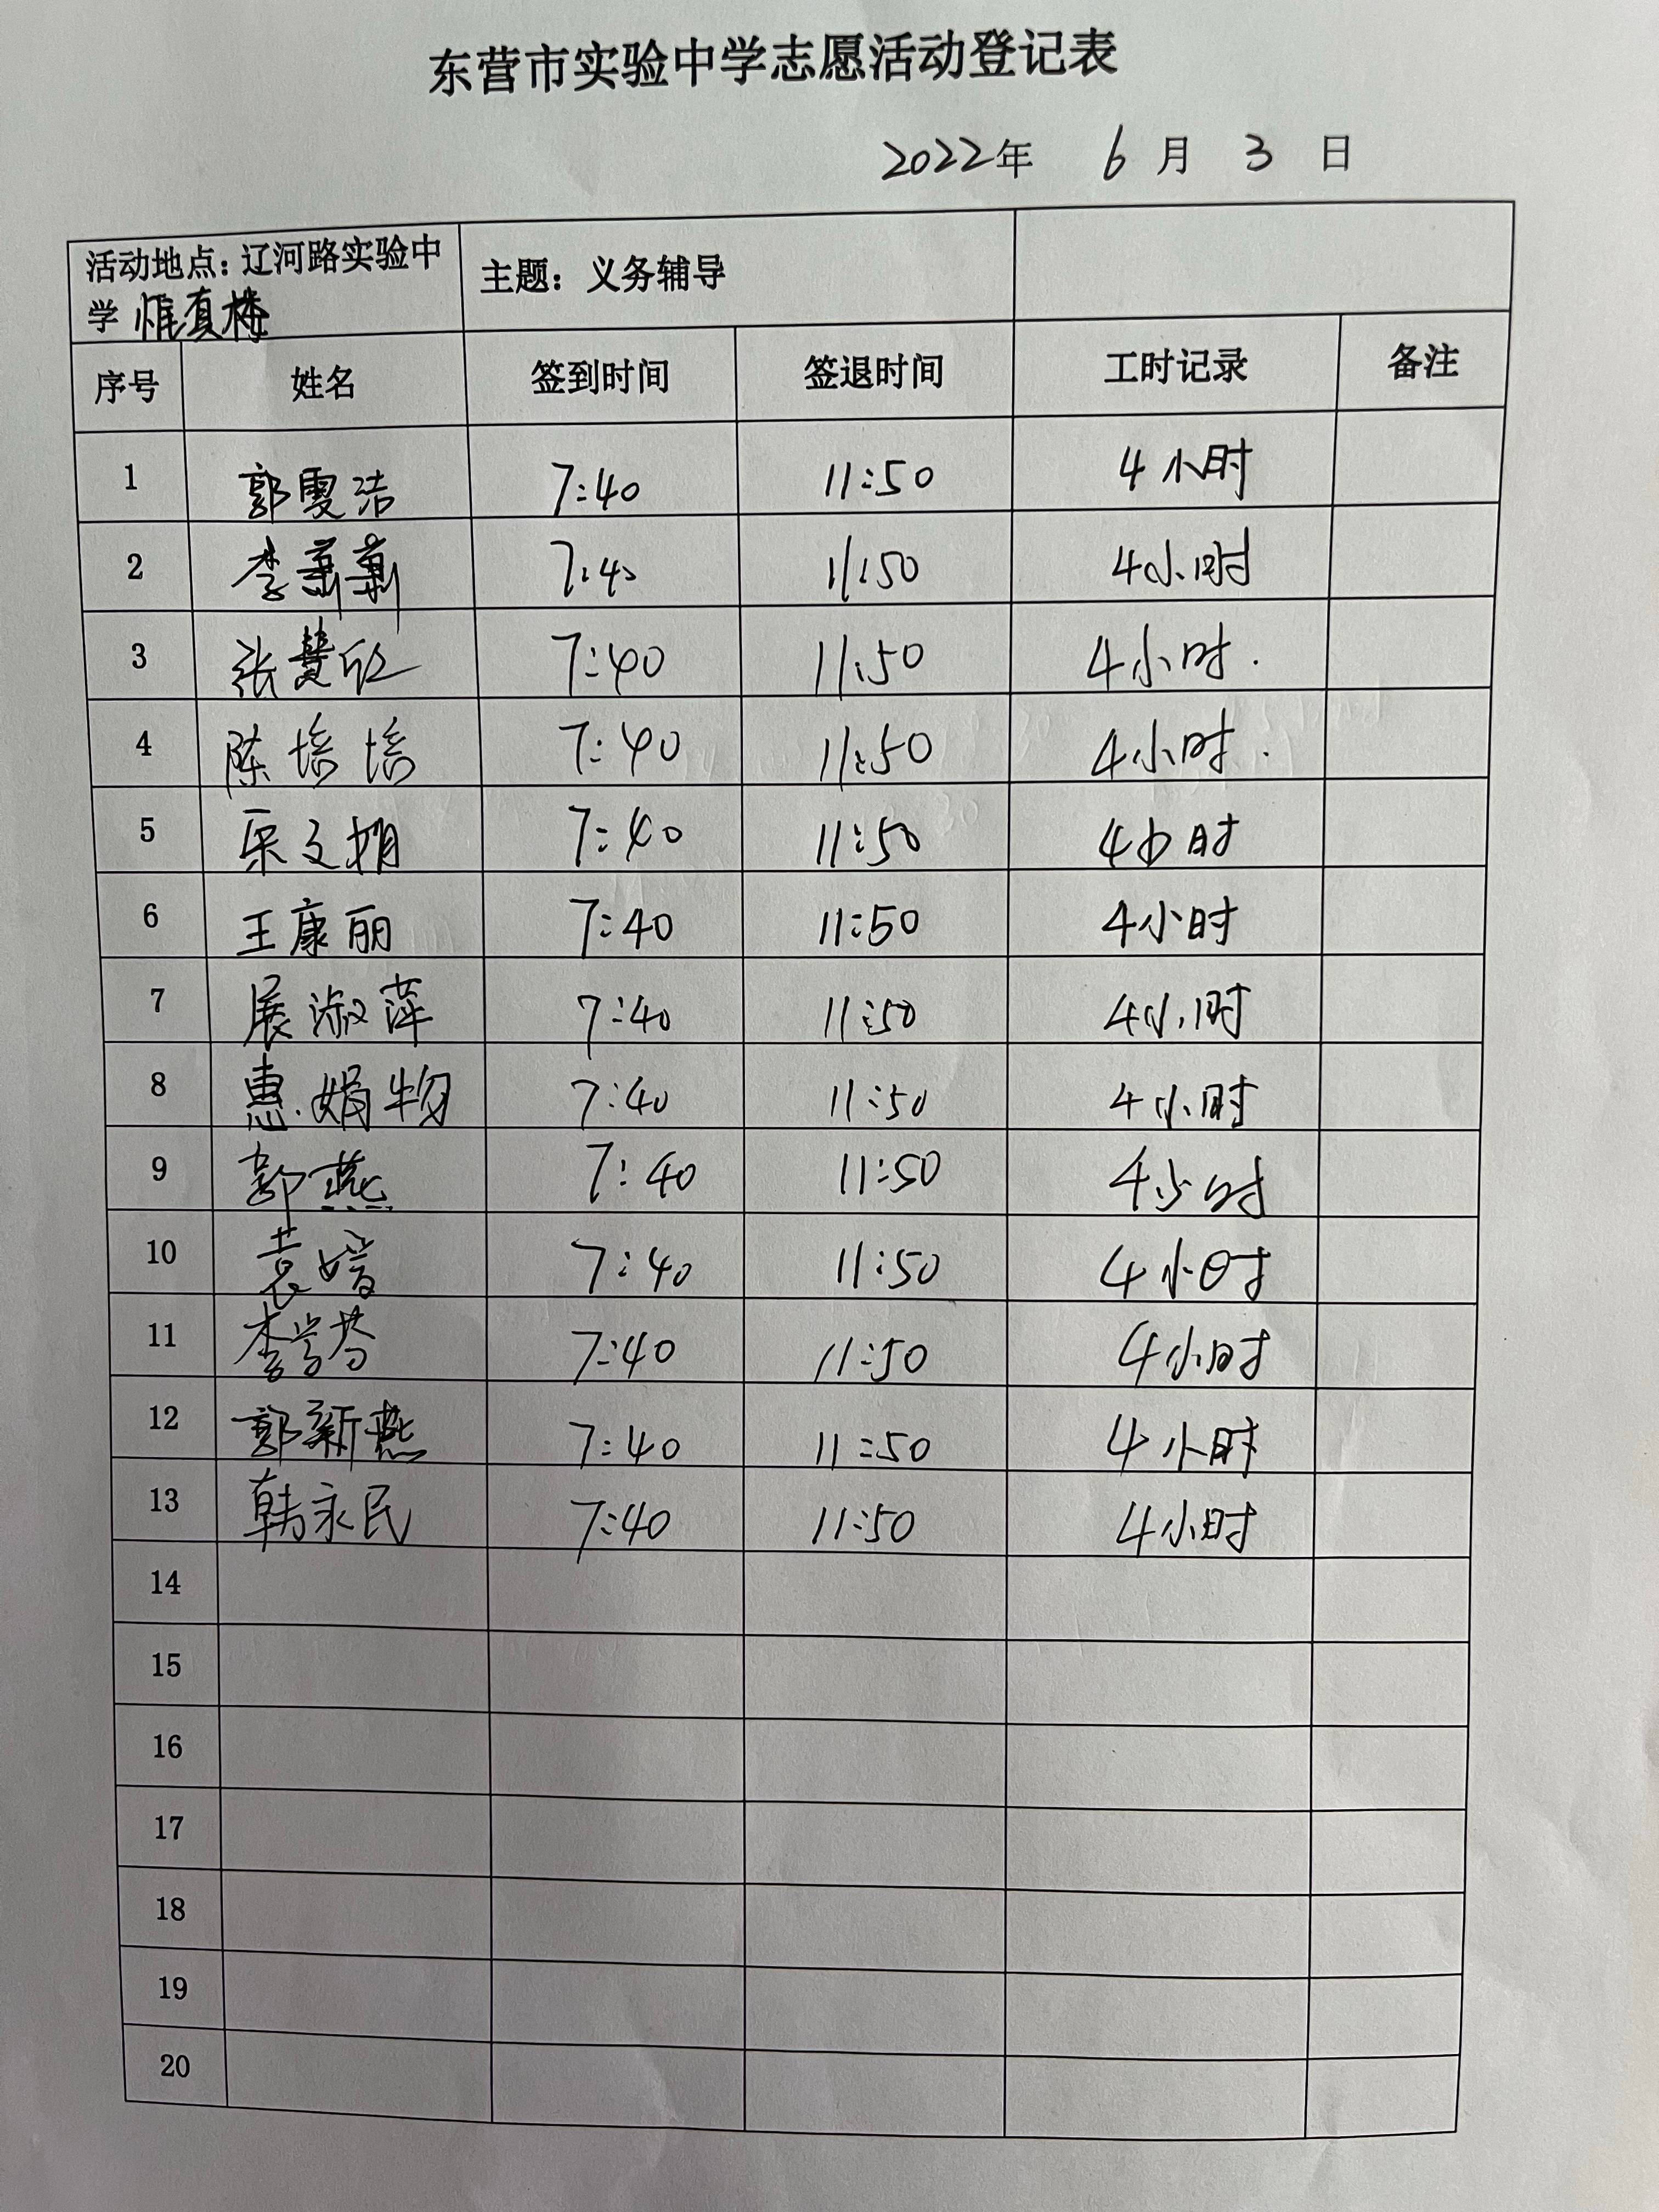 东营市实验中学志愿活动登记表
2022年 6 月 3 日
活动地点：辽河路实验中 主题：义务辅导
学 惟真楼
序号 姓名 签到时间 签退时间 工时记录 备注
1 郭雯洁 7:40 11:50 4小时
2 李 7:40 11:50 4小时
3 张慧欣 7:40 11:50 4小时.
4 陈培培 7:40 11:50 4小时.
5 文娟 7:40 11:50 4小时
6 王康丽 7:40 11:50 4小时
7 展淑萍 7:40 11:50 4小时
8 惠娟 7:40 11:50 4小时
9 郭燕 7:40 11:50 4小时
10 袁婷 7:40 11:50 4小时
11 李学芬 7:40 11:50 4小时
12 郭新燕 7:40 11:50 4小时
13 韩永民 7:40 11:50 4小时
14
15
16
17
18
19
20